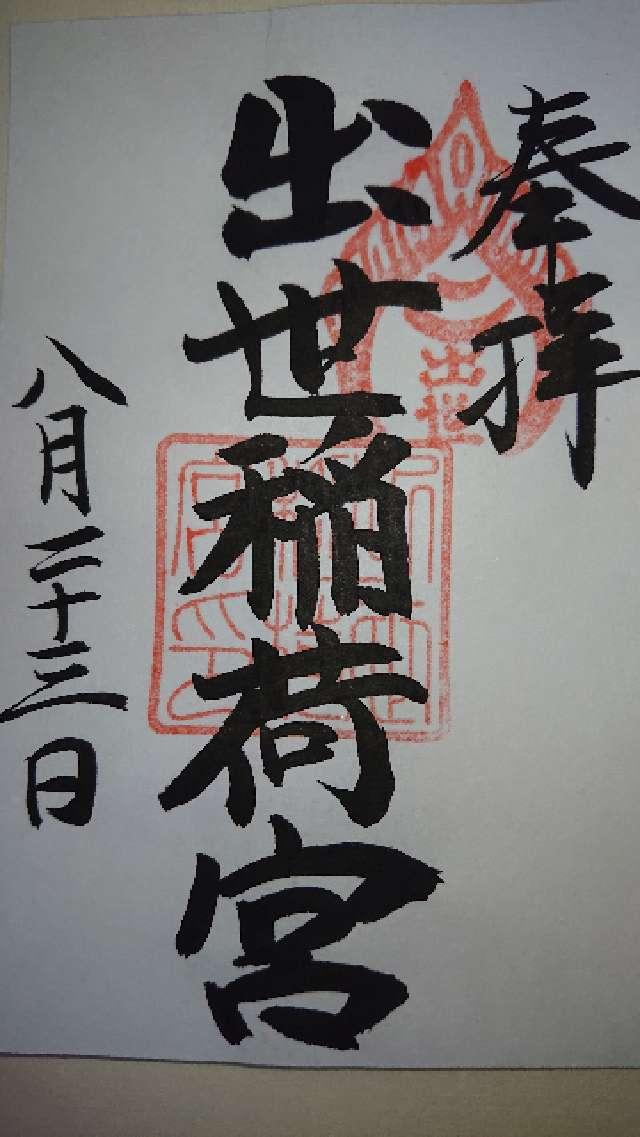 奉拝
出世
出世稲荷宮
八月二十三日